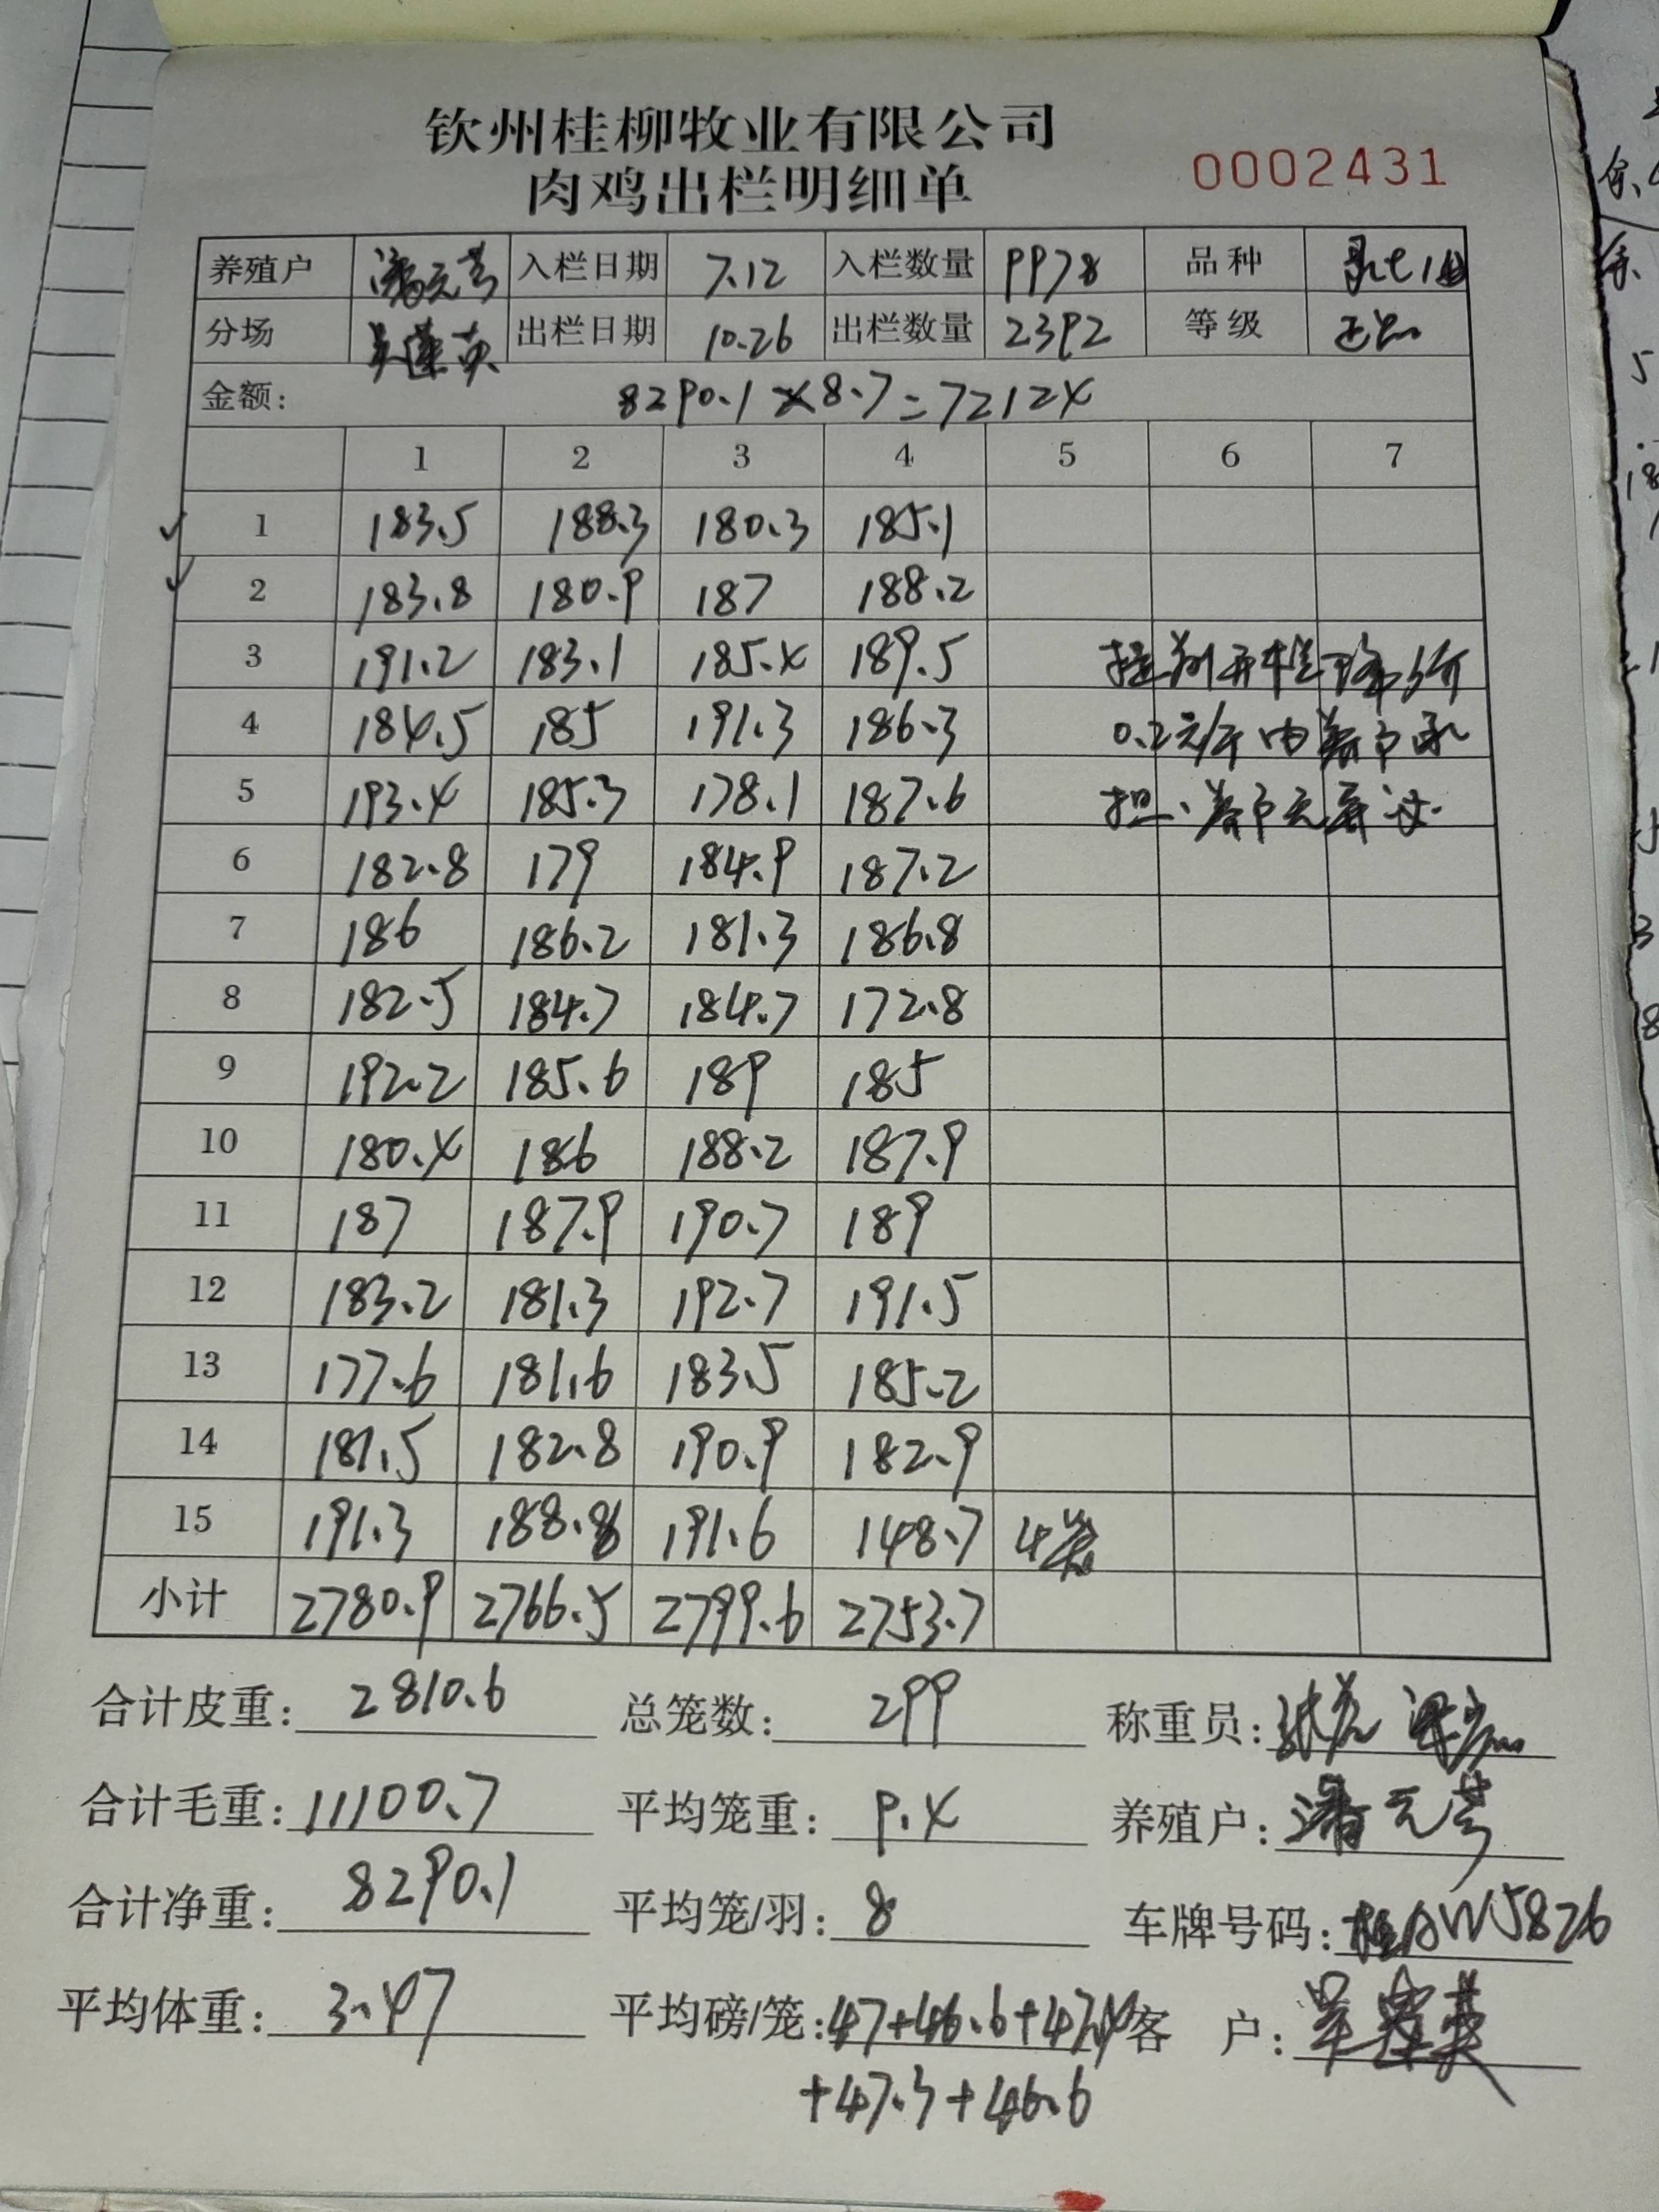 钦州桂柳牧业有限公司
肉鸡出栏明细单 0002431
养殖户 潘元芳 入栏日期 7.12 入栏数量 9978 品种
分场 出栏日期 10.26 出栏数量 2392 等级 正品
金额: 8290.1×8.7=72124
1 2 3 4 5 6 7
1 183.5 188.3 180.3 185.1
2 183.8 180.9 187 188.2
3 191.2 183.1 185.4 189.5 提前开栏降价
4 184.5 185 191.3 186.3 0.2元/斤由养户承
5 193.4 185.3 178.1 187.6 担、养户无异议.
6 182.8 179 184.9 187.2
7 186 186.2 181.3 186.8
8 182.5 184.7 184.7 172.8
9 192.2 185.6 189 185
10 180.4 186 188.2 187.9
11 187 187.9 190.7 189
12 183.2 181.3 192.7 191.5
13 177.6 181.6 183.5 185.2
14 181.5 182.8 190.9 182.9
15 191.3 188.8 191.6 148.7 4笼
小计 2780.9 2766.5 2799.6 2753.7
合计皮重: 2810.6 总笼数: 299 称重员:
合计毛重: 11100.7 平均笼重: 9.4 养殖户: 潘元芳
合计净重: 8290.1 平均笼/羽: 8 车牌号码: 桂AW5826
平均体重: 3.47 平均磅/笼: 47+46.6+47.4 客 户:
+47.3+46.6